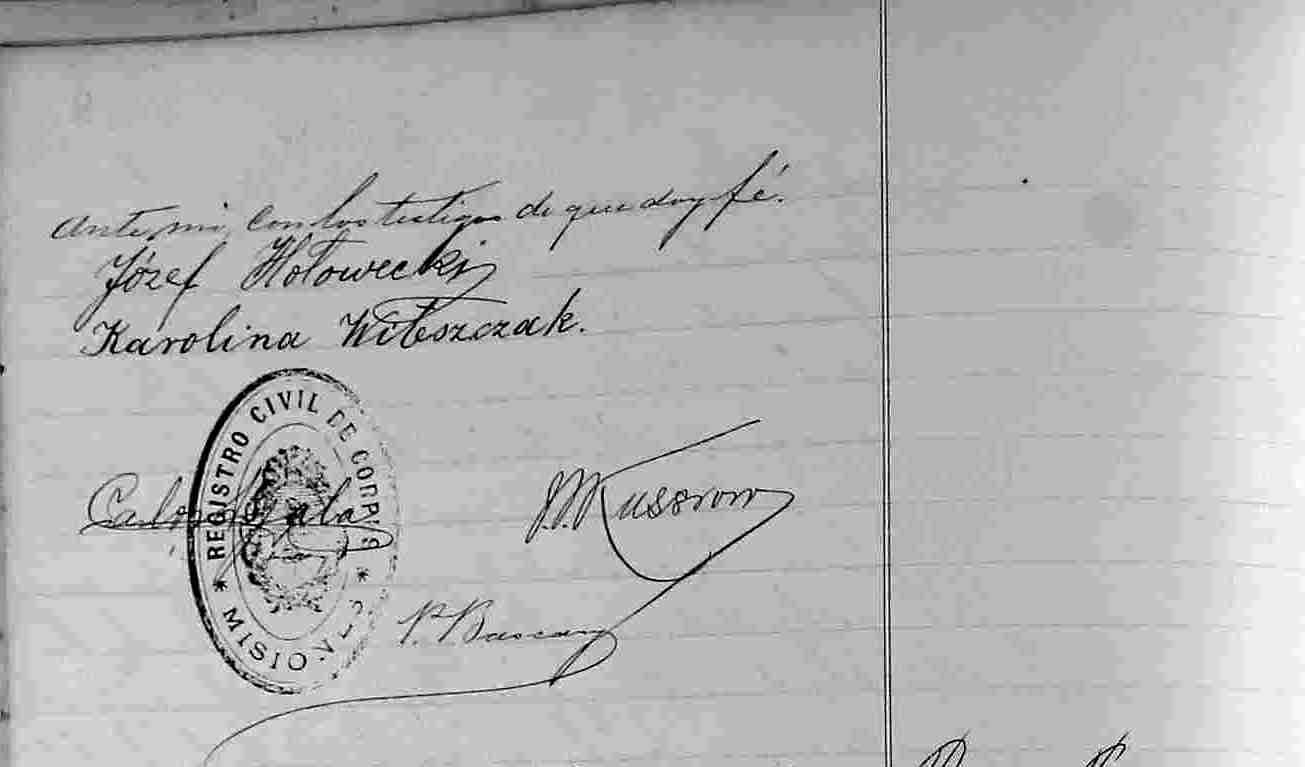 Ante mi, con los testigos de que doy fé.
Józef Hołowecki
Karolina Witeszczak.
REGISTRO CIVIL DE CORPUS
* MISIONES *
J. M. Kussrow
P. Bascary